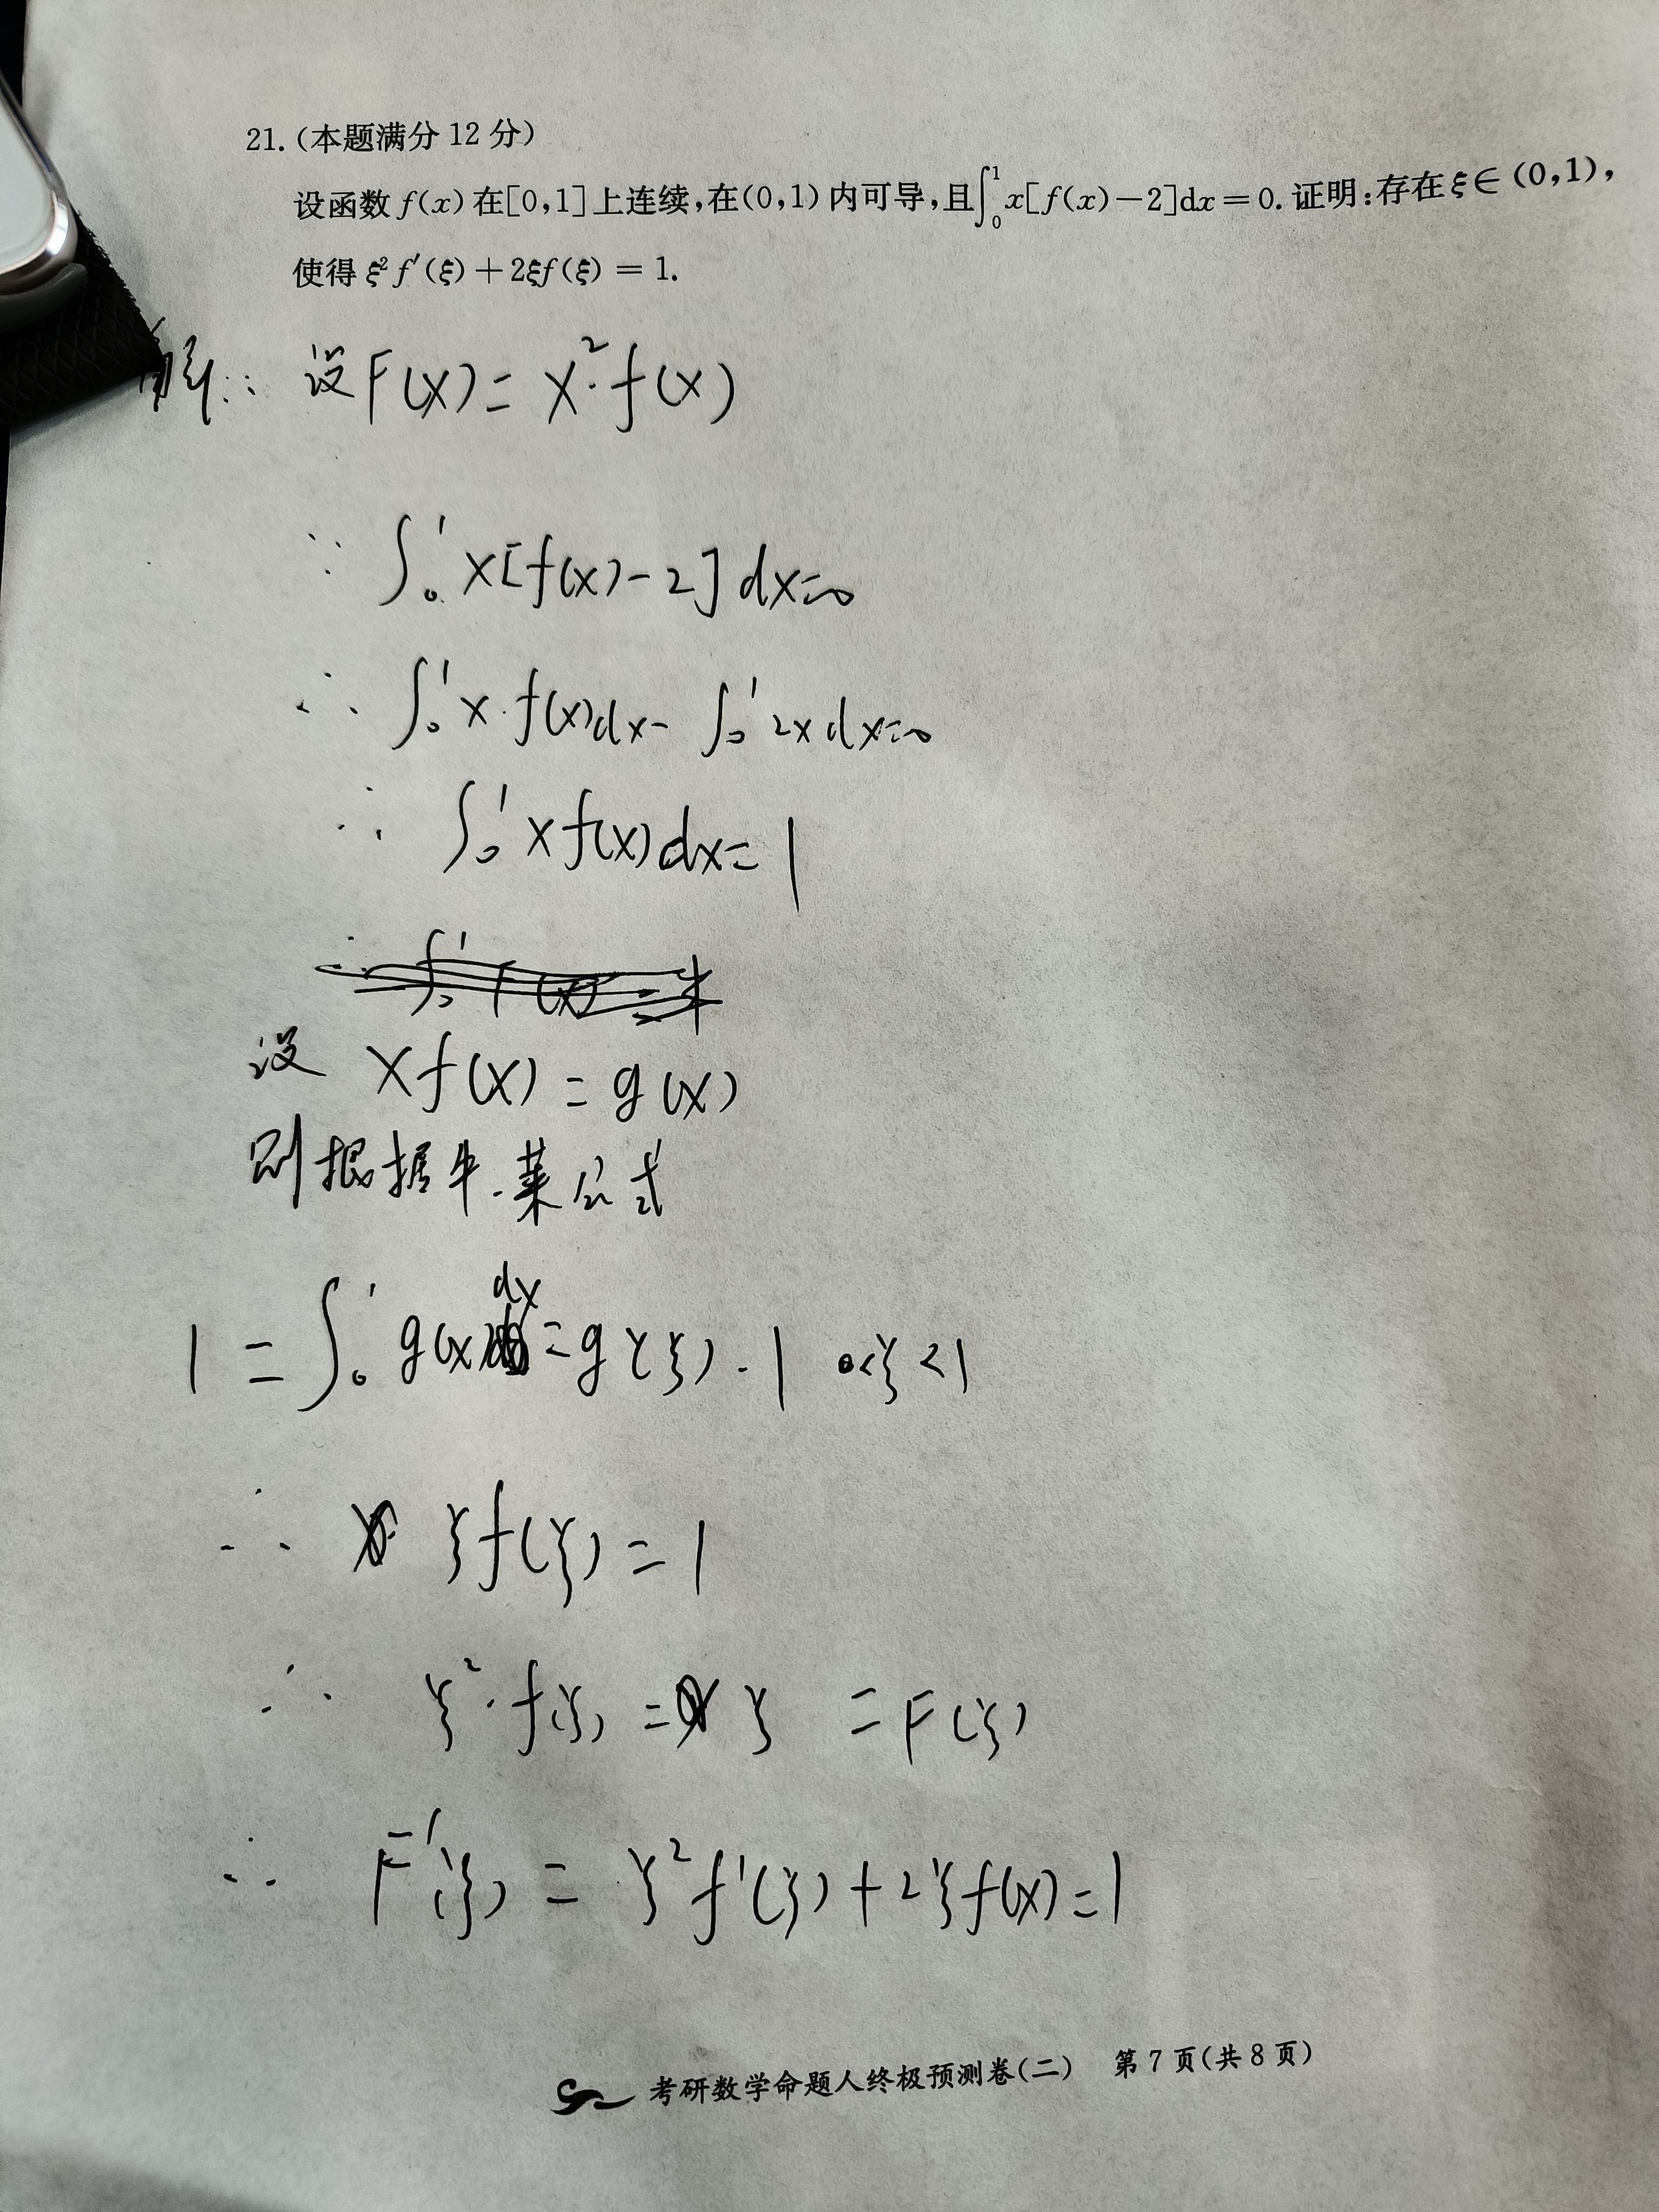 21.(本题满分 12 分)
设函数 f(x) 在[0,1]上连续,在(0,1)内可导,且∫₀¹x[f(x)-2]dx=0. 证明:存在 ξ∈(0,1),
使得 ξ²f′(ξ)+2ξf(ξ)=1.
解: 设F(x)= x²·f(x)
∵ ∫₀¹ x[f(x)-2]dx=0
∴ ∫₀¹ x·f(x)dx- ∫₀¹ 2xdx=0
∴ ∫₀¹ xf(x)dx=1
设 xf(x)=g(x)
则根据牛.莱公式
1=∫₀¹ g(x)dx=g(ξ)·1 0<ξ<1
∴ ξf(ξ)=1
∴ ξ²·f(ξ)=ξ =F(ξ)
∴ F′(ξ)=ξ²f′(ξ)+2ξf(x)=1
考研数学命题人终极预测卷(二) 第 7 页(共 8 页)